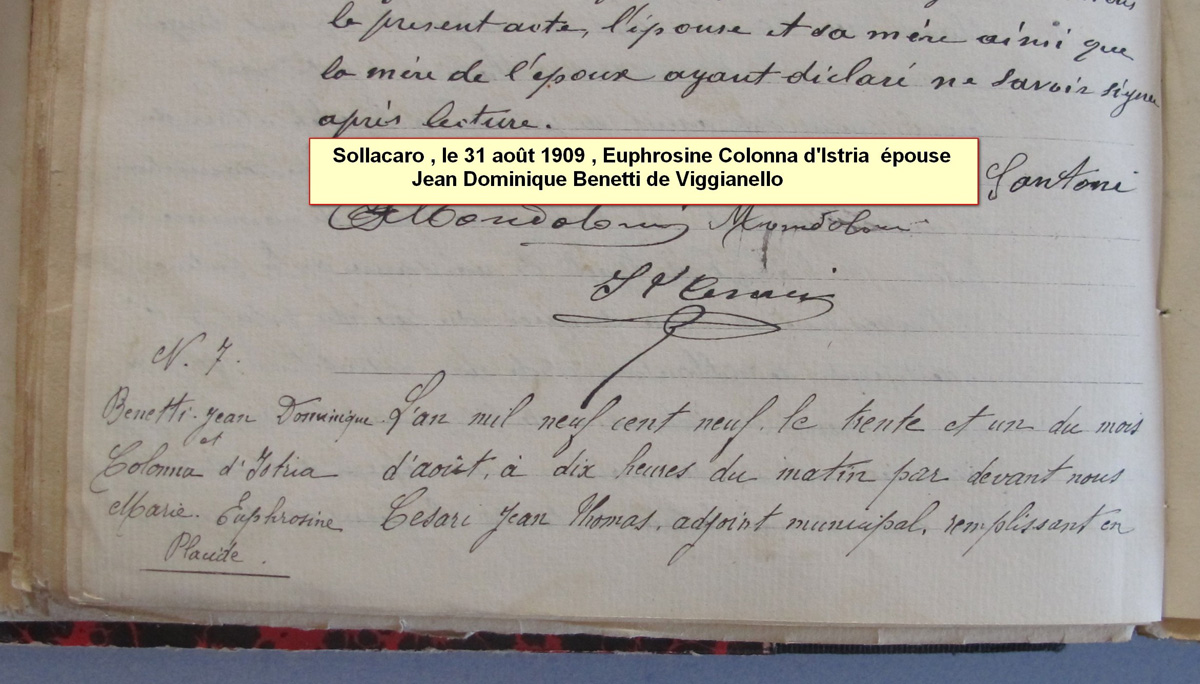 le present acte, l'épouse et sa mère ainsi que
la mère de l'époux ayant déclaré ne savoir signer
après lecture.
Sollacaro , le 31 août 1909 , Euphrosine Colonna d'Istria épouse
Jean Dominique Benetti de Viggianello
Santoni
Mondoloni Mondoloni
N. 7.
Benetti Jean Dominique
et
Colonna d'Istria
Marie Euphrosine
Placide.
L'an mil neuf cent neuf. le trente et un du mois
d'août, à dix heures du matin par devant nous
Cesari Jean Thomas, adjoint municipal, remplissant en